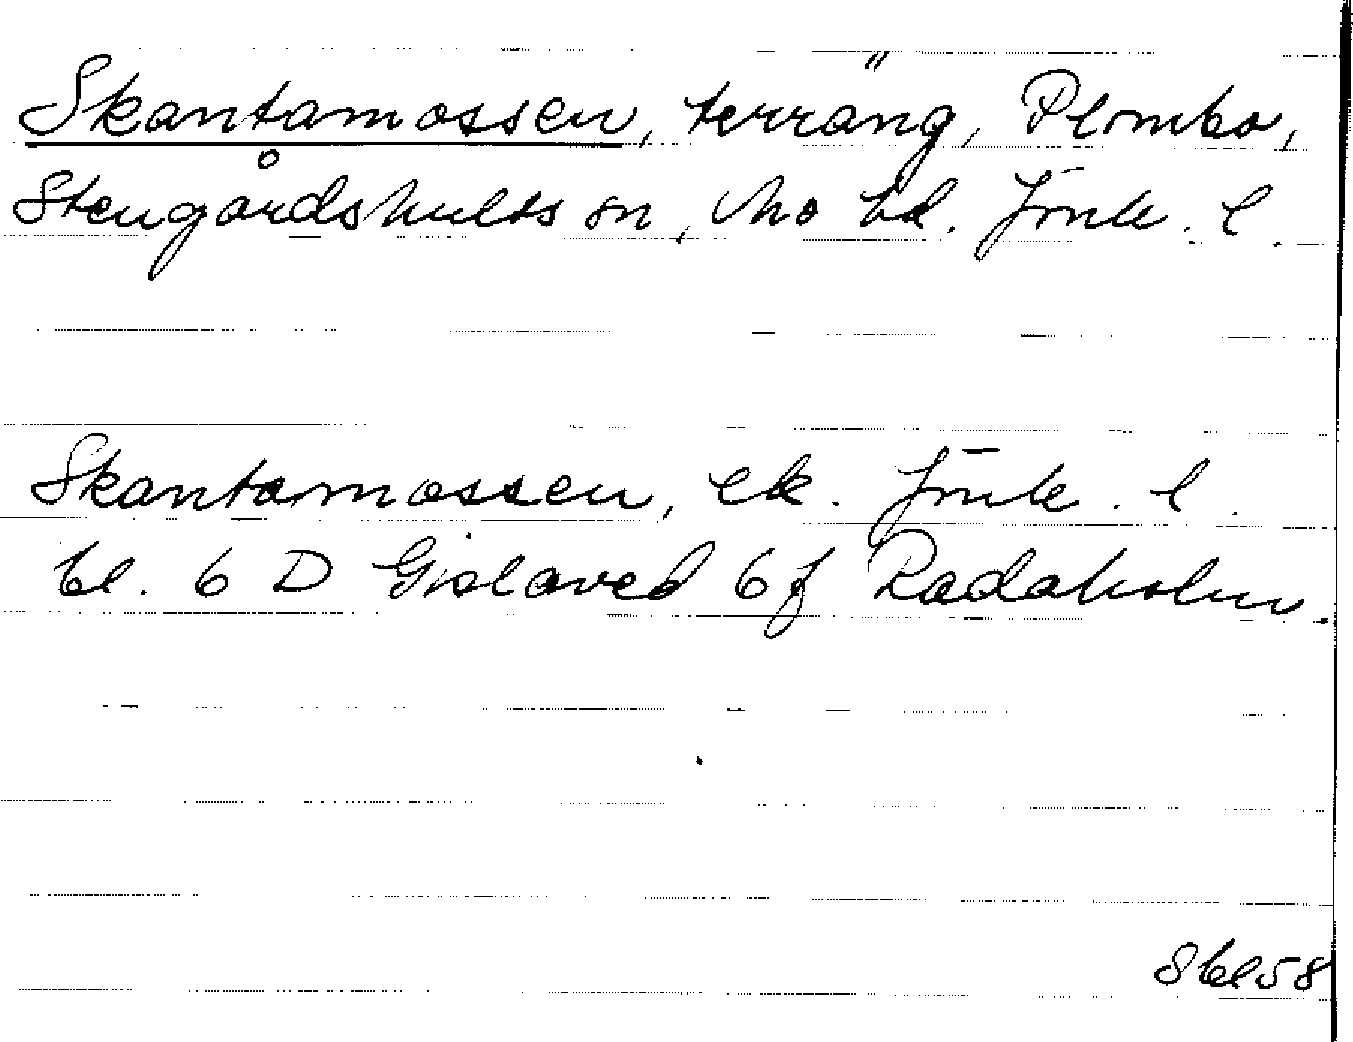 Skantamossen, terräng, Plombo,
Stengårdshults sn, Mo hd. Jönk. l.
Skantamossen, ek. Jönk. l.
bl. 6 D Gislaved 6f Radaholm.
Sbl58